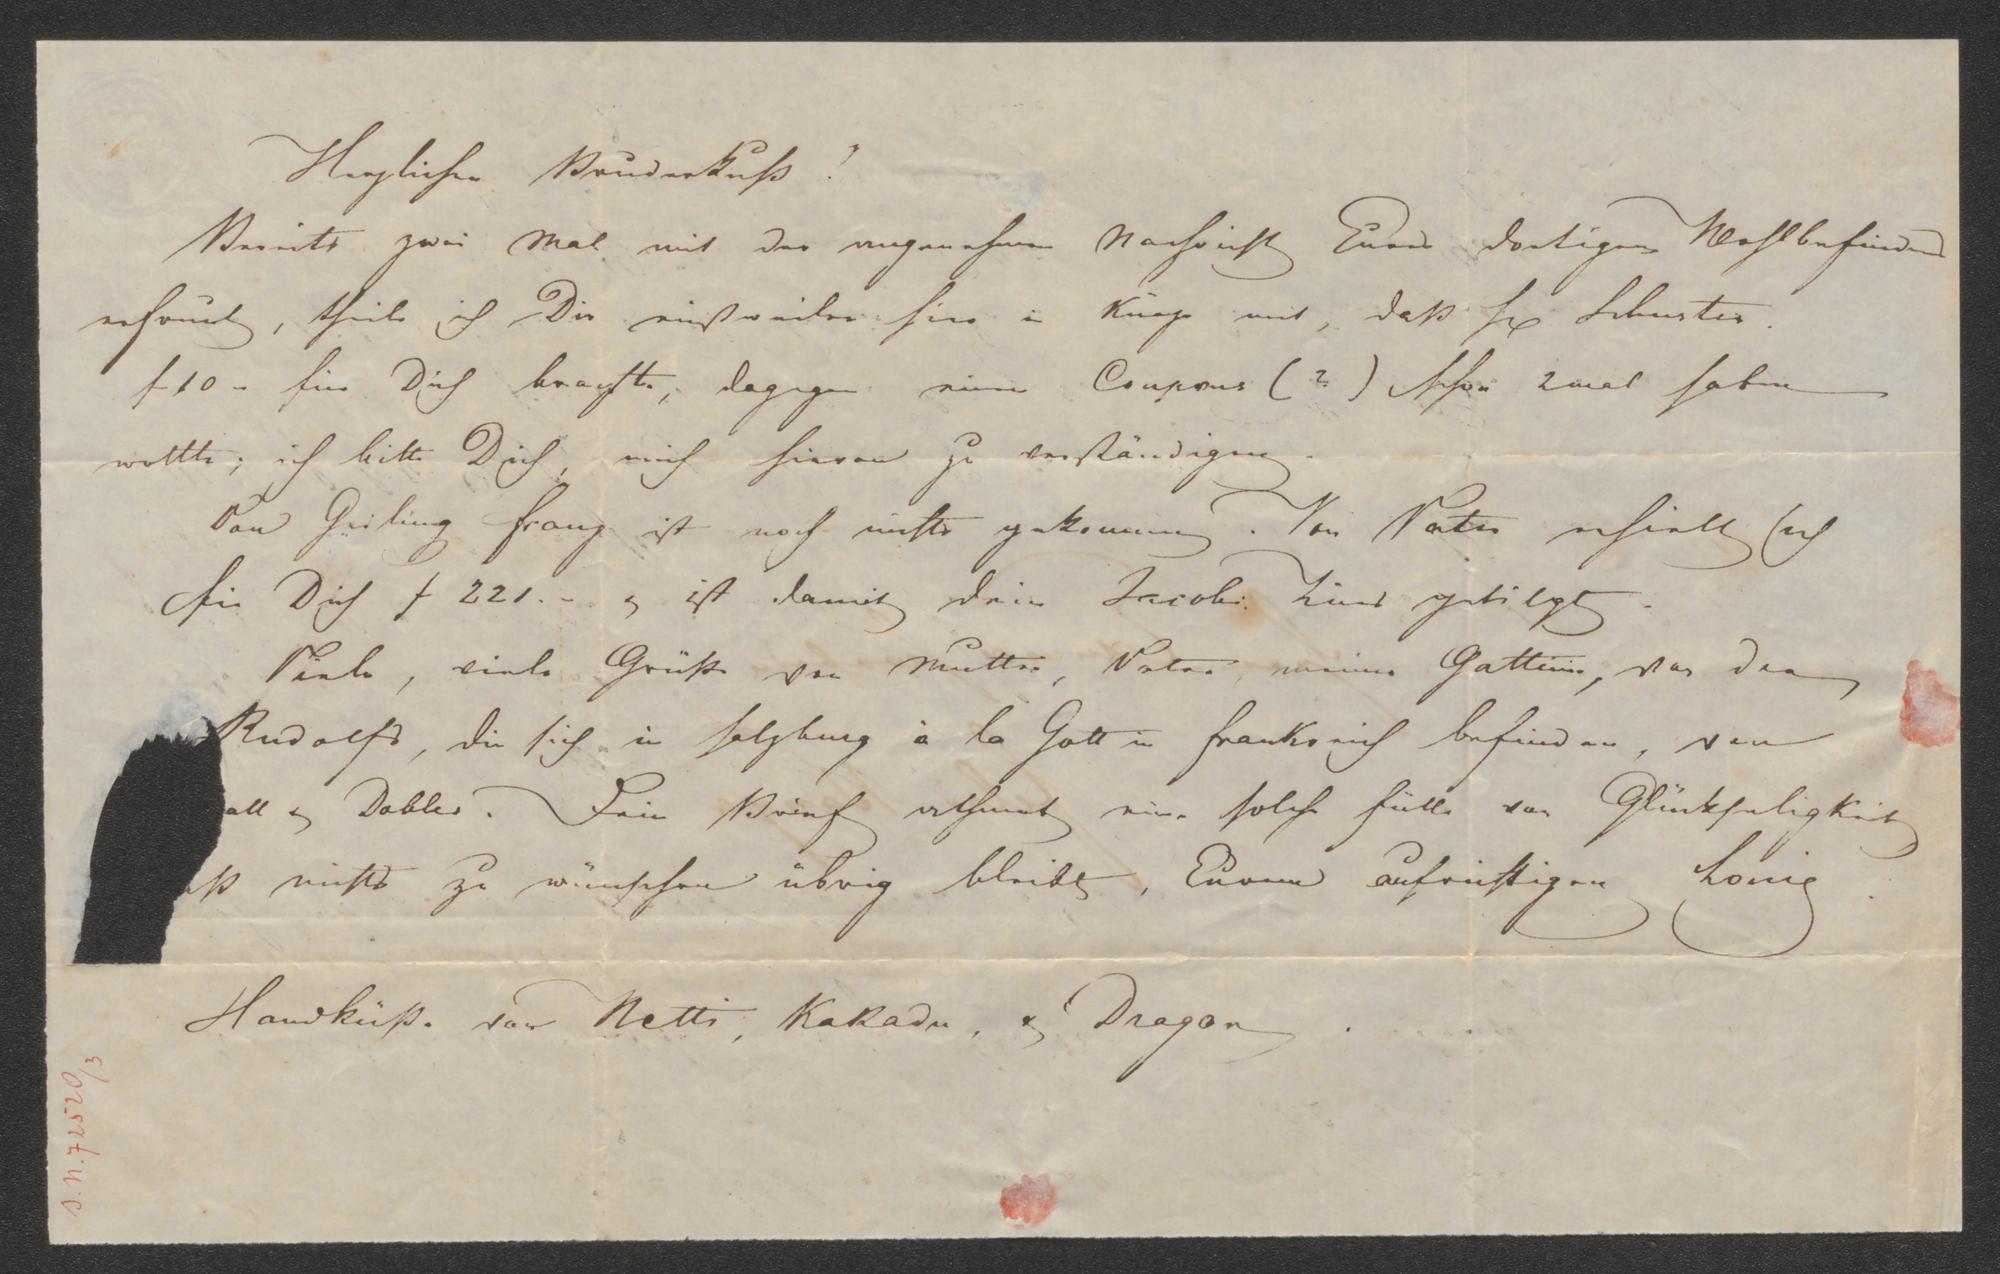 Herzlichen Bruderkuß!
Bereits zwei Mal mit der angenehmen Nachricht Eures dortigen Wohlbefindens
erfreut, theile ich Dir einstweilen hier in Kürze mit, daß H Schuster
f 10 – für Dich brachte, dagegen einen Coupons (?) schon 2mal haben
wollte; ich bitte Dich, mich hievon zu verständigen.
Von Geiling Franz ist noch nichts gekommen. Von Vater erhielt ich
für Dich f 221. – & ist damit dein Jacobi Zins getilgt.
Viele, viele Grüße von Mutter, Vater, meiner Gattinn, von den
Rudolfs, die sich in Salzburg à la Gott in Frankreich befinden, von
all & Dobler. Dein Brief athmet eine solche Fülle von Glückseligkeit
aß nichts zu wünschen übrig bleibt, Eurem aufrichtigen
Handküße von Netti, Kakadu, & Dragon.
S.N. 72520/3